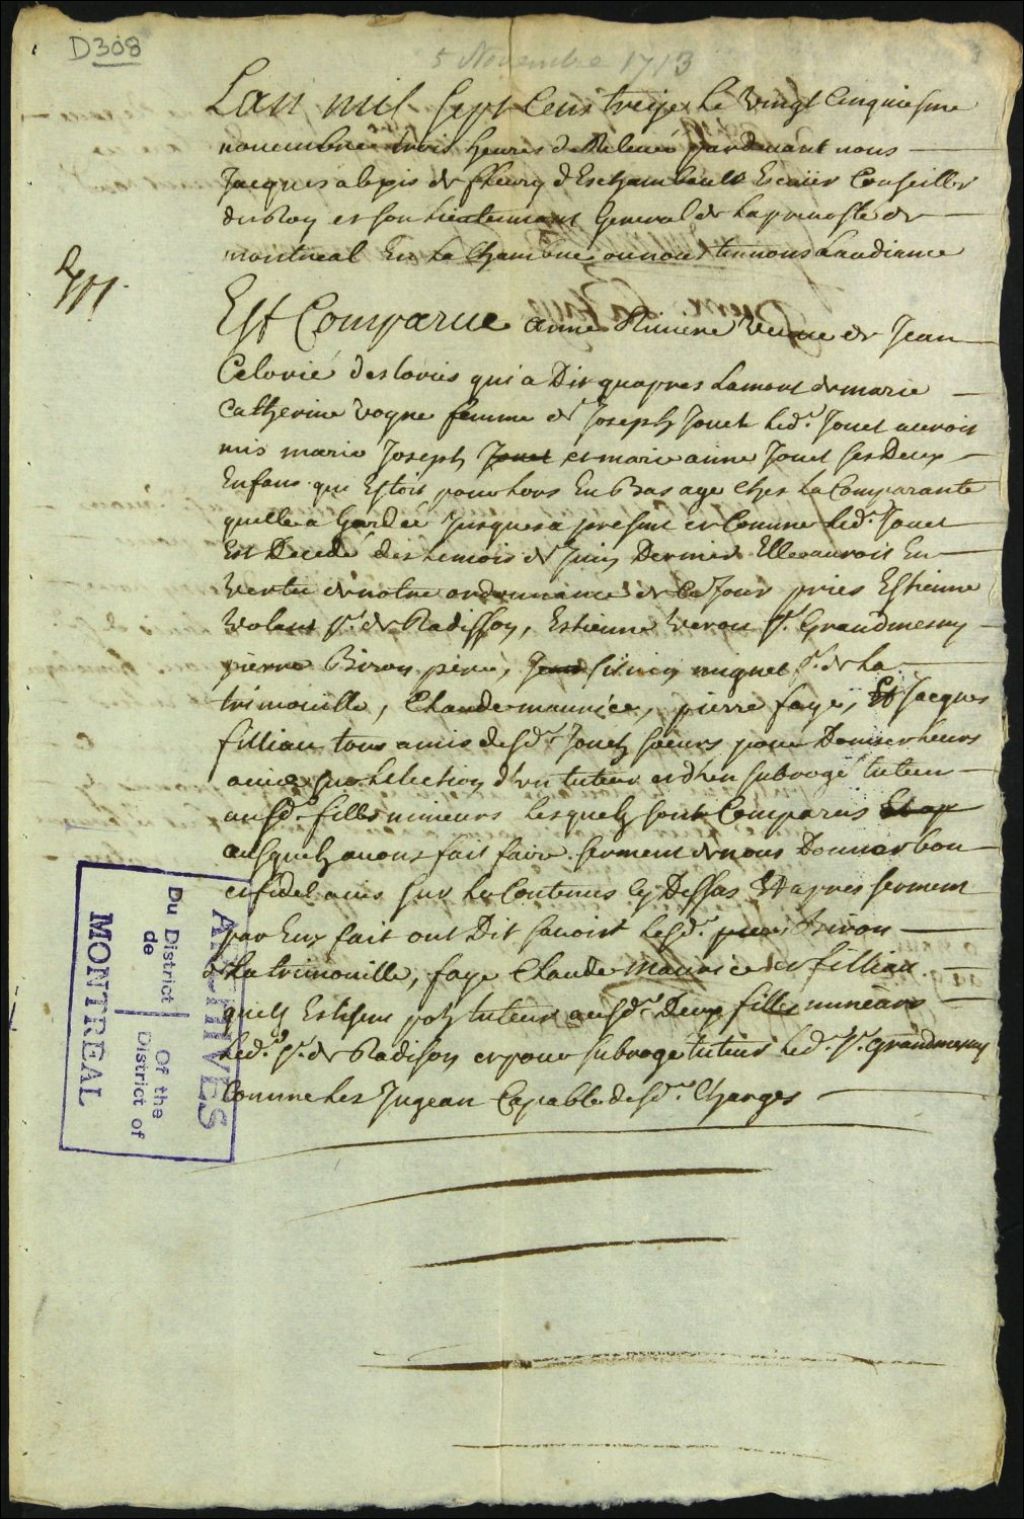 D308
5 Novembre 1713
Lan mil Sept Cens treize Le Vingt Cinquiesme
nouembre trois heures de Releuée pardeuant nous
Jacques alexis de fleury dEschambault Escuier Conseiller
du Roy et son Lieutennant General de La preuosté de
montreal En La Chambre ou nous tennons Laudiance
Est Comparue anne Riuiere Veuue de Jean
Celorié deslories qui a Dit quapres Lamort de marie
Catherine Vogne femme de Joseph Jouet Led. Jouet auroit
mis marie Joseph Jouet et marie anne Jouet ses Deux
Enfans qui Estoit pour Lors En Bas age Ches La Comparante
quelle a Gardée Jusques a present et Comme Led. Jouet
Est Decedé des Lemois de Juin Dernier Elle auroit En
Vertu de notre ordonnance de Ce Jour priés Estienne
Volant Sr. de Radisson, Estienne Veron Sr. Grandmesny
pierre Biron pere, miquet Sr. de La
trimouille, Claude maurice, pierre faye, Et Jacques
fillian tous amis desd. Jouet soeurs pour Donner Leurs
auis sur Lelection dVn tuteur et dVn subrogé tuteur
ausd. filles mineurs Lesquels sont Comparus
ausquels auons fait faire serment de nous Donner bon
et fidel auis sur Le Contenus Cy Dessus Et apres serment
par Eux fait ont Dit sauoir Lesd. Biron
Latrimouille, faye Claude Maurice et fillian
quils Eslisent po. tuteur ausd. Deux filles mineurs
Led. Sr. de Radisson et pour subrogé tuteur Led. Sr. Grandmesny
Comme Les Jugeant Capable desd. Charges
ARCHIVES
Du District | Of the
de | District of
MONTREAL